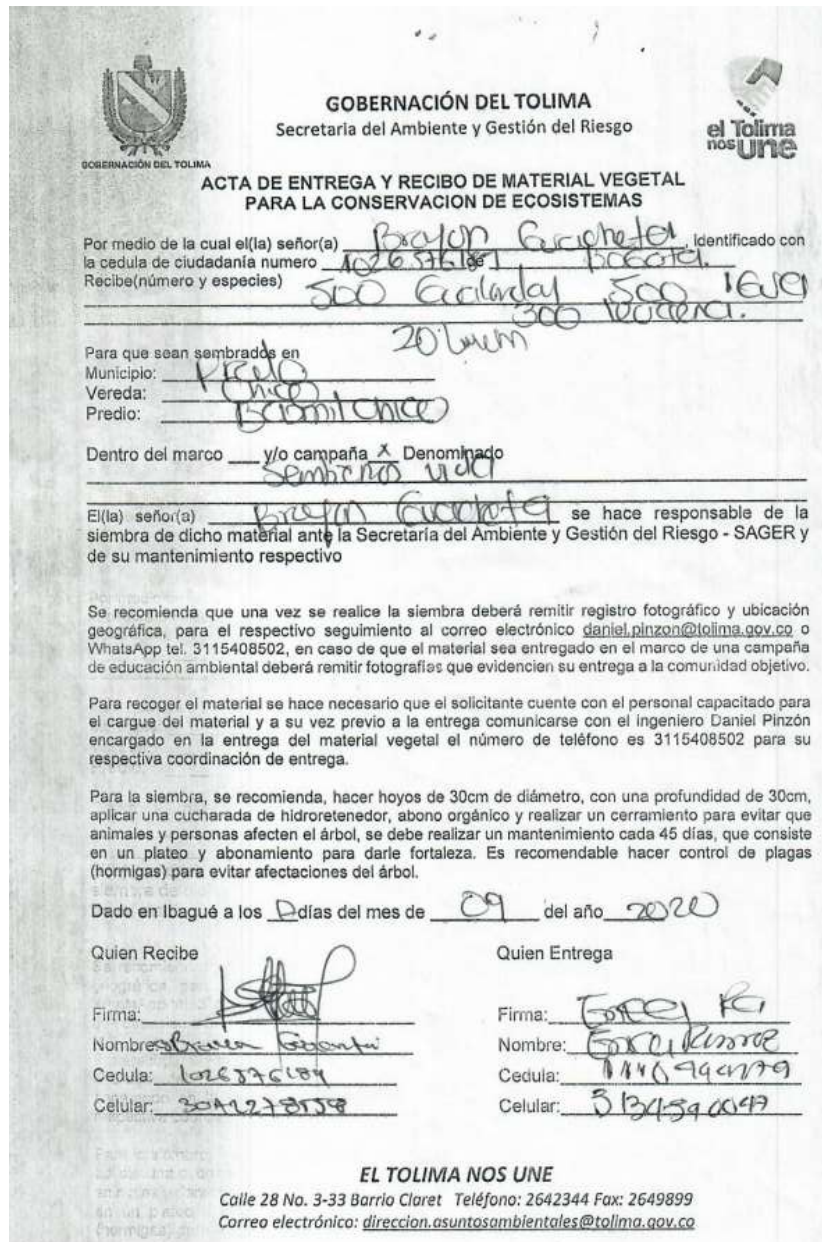 GOBERNACIÓN DEL TOLIMA
Secretaria del Ambiente y Gestión del Riesgo
el Tolima
nos une
GOBERNACIÓN DEL TOLIMA
ACTA DE ENTREGA Y RECIBO DE MATERIAL VEGETAL
PARA LA CONSERVACION DE ECOSISTEMAS
Por medio de la cual el(la) señor(a) Brayan, Identificado con
la cedula de ciudadanía numero
Recibe(número y especies) 500 500
300
20
Para que sean sembrados en
Municipio:
Vereda: Chico
Predio: Chico
Dentro del marco y/o campaña X Denominado
Sembremos vida
El(la) señor(a) Brayan se hace responsable de la
siembra de dicho material ante la Secretaría del Ambiente y Gestión del Riesgo - SAGER y
de su mantenimiento respectivo
Se recomienda que una vez se realice la siembra deberá remitir registro fotográfico y ubicación
geográfica, para el respectivo seguimiento al correo electrónico daniel.pinzon@tolima.gov.co o
WhatsApp tel. 3115408502, en caso de que el material sea entregado en el marco de una campaña
de educación ambiental deberá remitir fotografías que evidencien su entrega a la comunidad objetivo.
Para recoger el material se hace necesario que el solicitante cuente con el personal capacitado para
el cargue del material y a su vez previo a la entrega comunicarse con el ingeniero Daniel Pinzón
encargado en la entrega del material vegetal el número de teléfono es 3115408502 para su
respectiva coordinación de entrega.
Para la siembra, se recomienda, hacer hoyos de 30cm de diámetro, con una profundidad de 30cm,
aplicar una cucharada de hidroretenedor, abono orgánico y realizar un cerramiento para evitar que
animales y personas afecten el árbol, se debe realizar un mantenimiento cada 45 días, que consiste
en un plateo y abonamiento para darle fortaleza. Es recomendable hacer control de plagas
(hormigas) para evitar afectaciones del árbol.
Dado en Ibagué a los días del mes de 09 del año 2020
Quien Recibe Quien Entrega
Firma: Firma:
Nombre: Nombre:
Cedula: Cedula:
Celular: Celular:
EL TOLIMA NOS UNE
Calle 28 No. 3-33 Barrio Claret Teléfono: 2642344 Fax: 2649899
Correo electrónico: direccion.asuntosambientales@tolima.gov.co